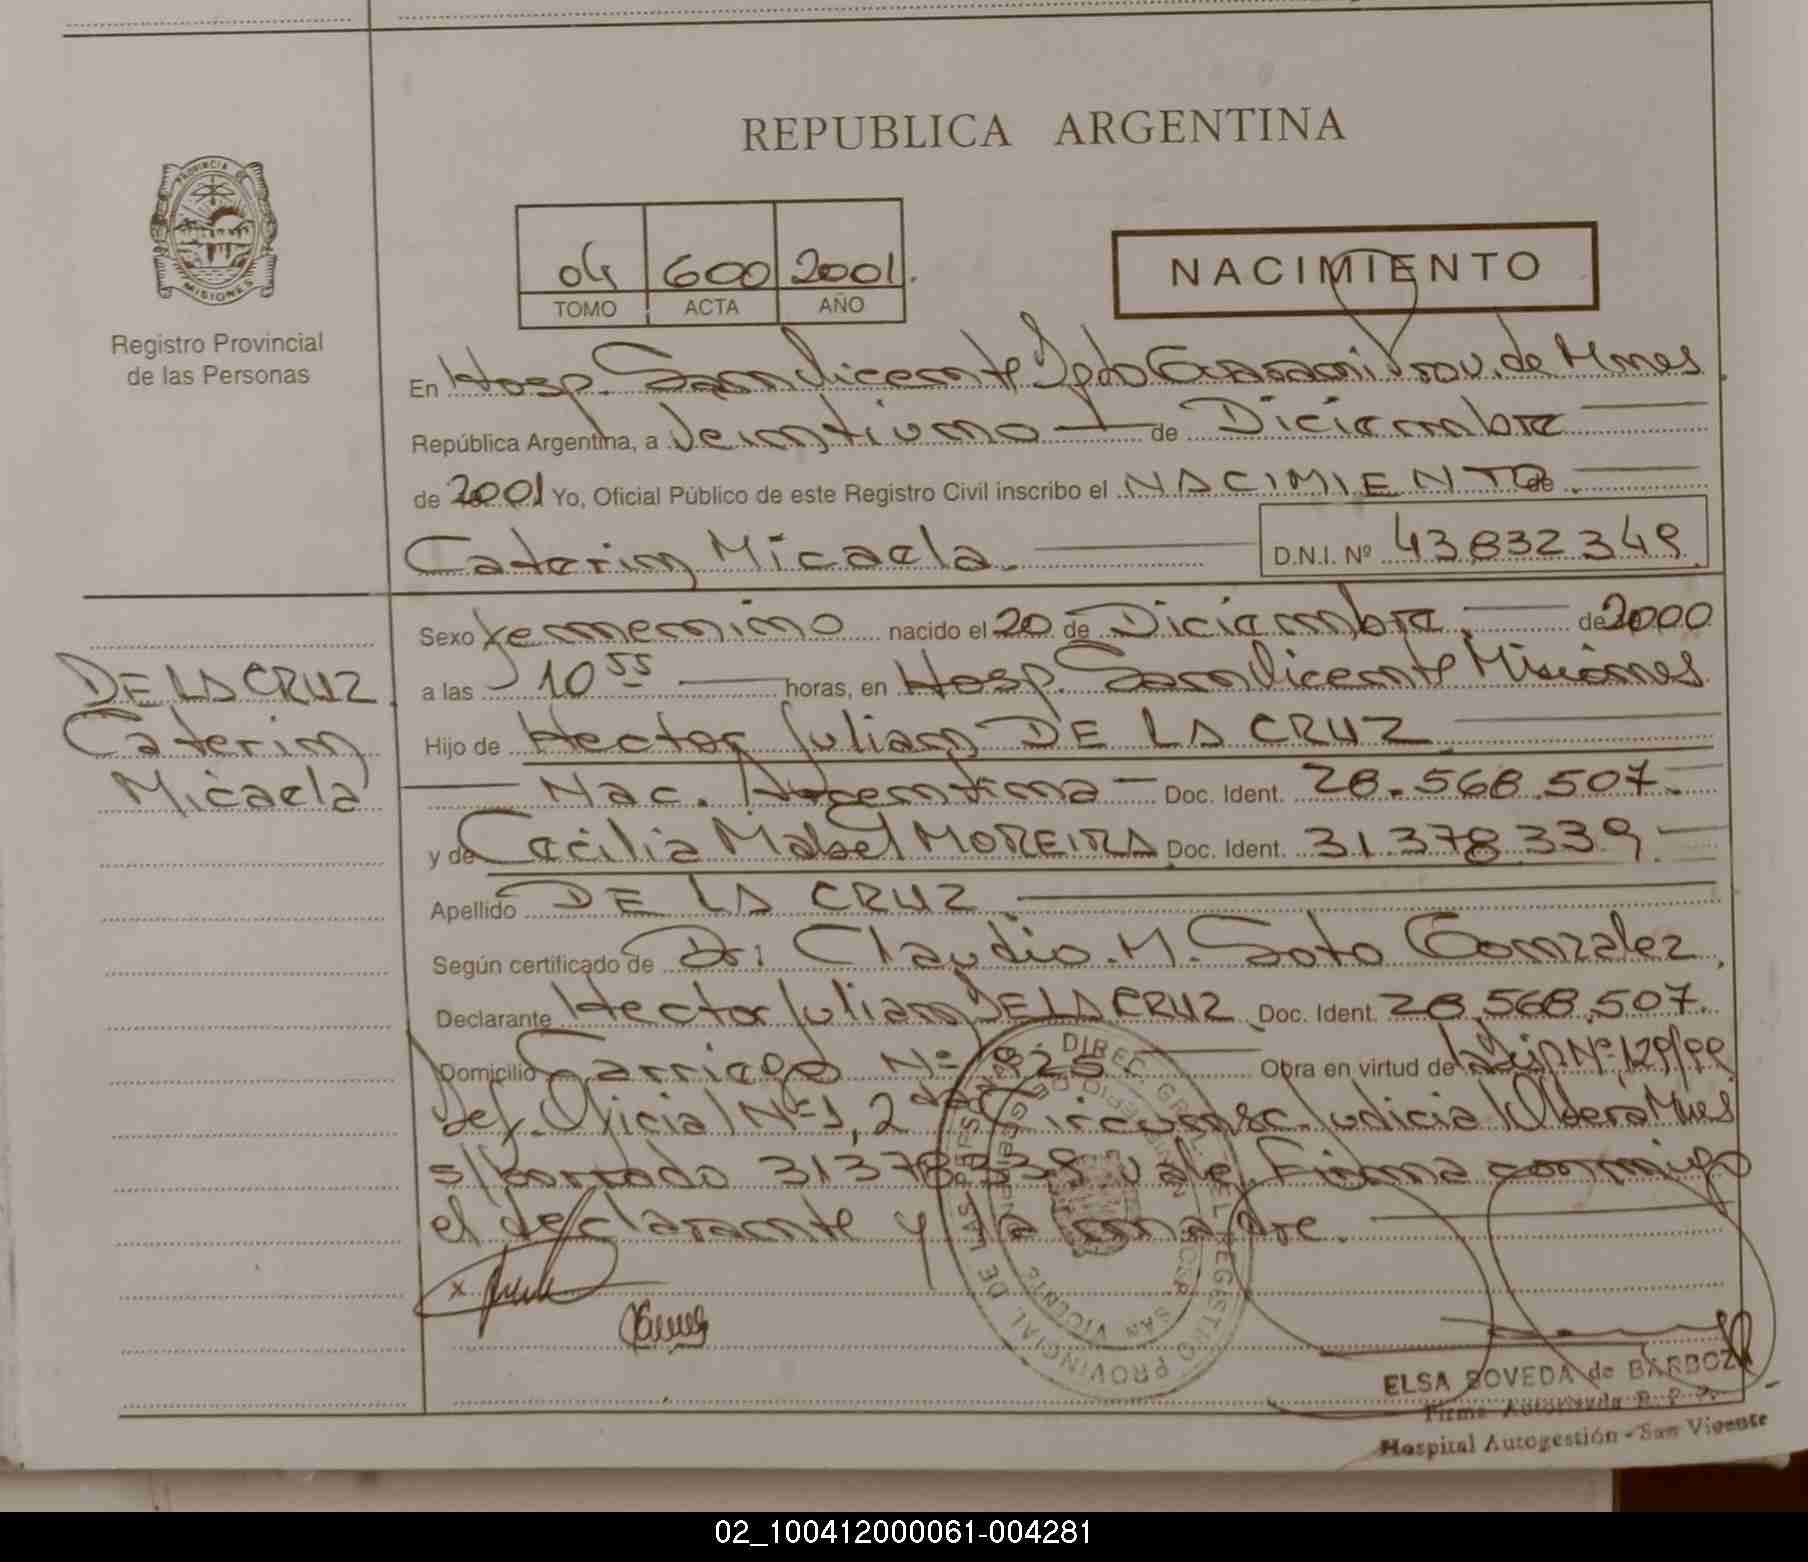 REPUBLICA ARGENTINA
PROVINCIA DE
MISIONES
Registro Provincial
de las Personas
04 600 2001.
TOMO ACTA AÑO
NACIMIENTO
En Hosp. San Vicente Dpto Guarani Prov. de Mnes
República Argentina, a Veintiuno de Diciembre
de 2001 Yo, Oficial Público de este Registro Civil inscribo el NACIMIENTO de
Caterin Micaela. D.N.I. Nº 43.832.349
Sexo Femenino nacido el 20 de Diciembre de 2000
a las 10 55 horas, en Hosp. San Vicente Misiones
Hijo de Hector Julian DE LA CRUZ
Nac. Argentina Doc. Ident. 28.568.507.
y de Cecilia Mabel MOREIRA Doc. Ident. 31.378.339.
Apellido DE LA CRUZ
Según certificado de Dr: Claudio. M. Soto Gonzalez
Declarante Hector Julian DE LA CRUZ Doc. Ident. 28.568.507.
Domicilio Carriego Nº 1825 Obra en virtud de Nº 129/99
Def. Oficial Nº 1, 2da Circunsc. Judicial Obera Mnes
s/borrado 31378339 vale. Firma conmigo
el declarante y la madre.
DE LA CRUZ
Caterin
Micaela
DIREC. GRAL. DEL REGISTRO PROVINCIAL DE LAS PERSONAS
HOSP. SAN VICENTE
ELSA BOVEDA de BARBOZA
Firma Autorizada R. P. P.
Hospital Autogestión - San Vicente
02_100412000061-004281